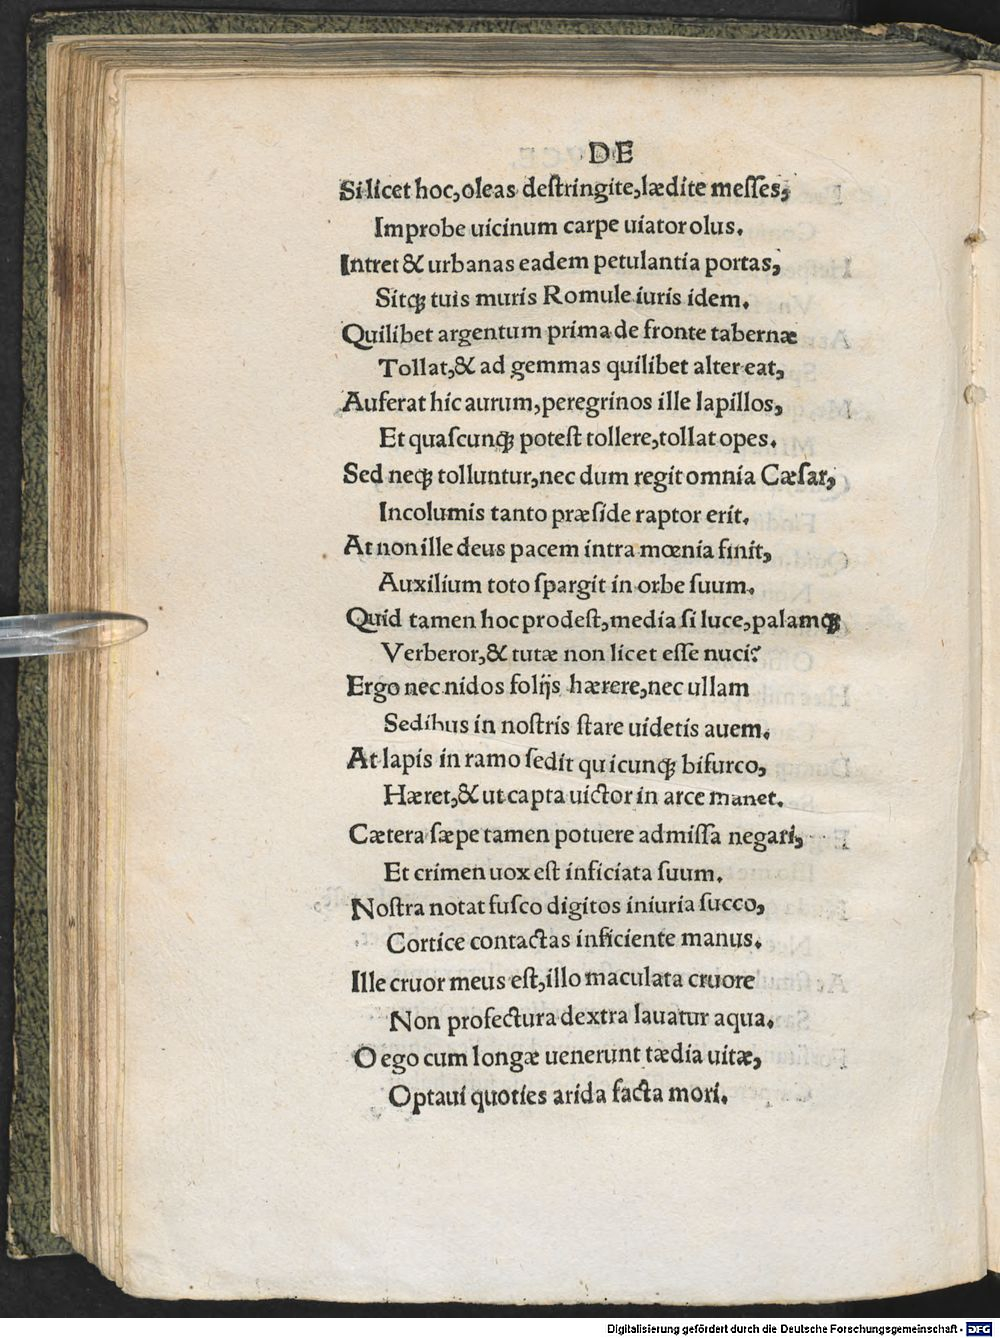 DE
Si licet hoc, oleas deſtringite, lædite meſſes,
Improbe uicinum carpe uiator olus.
Intret & urbanas eadem petulantia portas,
Sitqꝫ tuis muris Romule iuris idem.
Quilibet argentum prima de fronte tabernæ
Tollat, & ad gemmas quilibet alter eat,
Auferat hic aurum, peregrinos ille lapillos,
Et quaſcunqꝫ poteſt tollere, tollat opes.
Sed neqꝫ tolluntur, nec dum regit omnia Cæſar,
Incolumis tanto præſide raptor erit.
At non ille deus pacem intra mœnia finit,
Auxilium toto ſpargit in orbe ſuum.
Quid tamen hoc prodeſt, media ſi luce, palamqꝫ
Verberor, & tutæ non licet eſſe nuci?
Ergo nec nidos folijs hærere, nec ullam
Sedibus in noſtris ſtare uidetis auem.
At lapis in ramo ſedit quicunqꝫ bifurco,
Hæret, & ut capta uictor in arce manet.
Cætera ſæpe tamen potuere admiſſa negari,
Et crimen uox eſt inficiata ſuum.
Noſtra notat fuſco digitos iniuria ſucco,
Cortice contactas inficiente manus.
Ille cruor meus eſt, illo maculata cruore
Non profectura dextra lauatur aqua.
O ego cum longæ uenerunt tædia uitæ,
Optaui quoties arida facta mori.
Digitalisierung gefördert durch die Deutsche Forschungsgemeinschaft - DFG